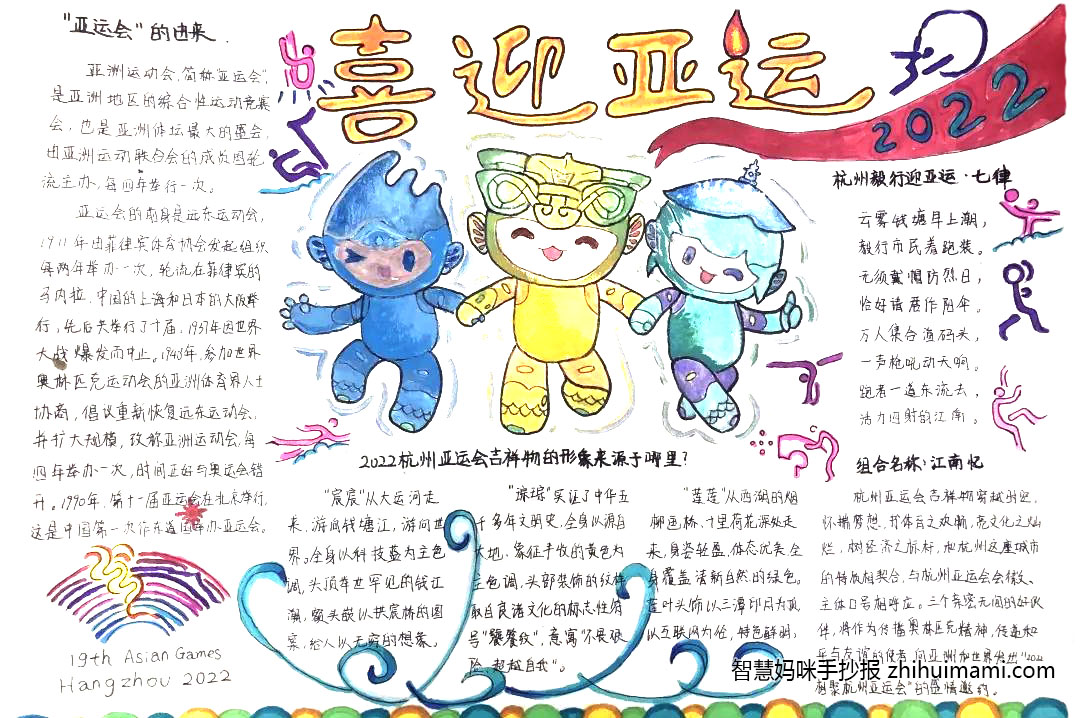 喜迎亚运
2022
"亚运会"的由来
亚洲运动会,简称"亚运会",
是亚洲地区的综合性运动竞赛
会,也是亚洲体坛最大的盛会,
由亚洲运动联合会的成员国轮
流主办,每四年举行一次。
亚运会的前身是远东运动会,
1911年由菲律宾体育协会发起组织
每两年举办一次,轮流在菲律宾的
马内拉、中国的上海和日本的大阪举
行,先后共举行了十届,1937年因世界
大战爆发而中止。1948年,参加世界
奥林匹克运动会的亚洲体育界人士
协商,倡议重新恢复远东运动会,
并扩大规模,改称亚洲运动会,每
四年举办一次,时间正好与奥运会错
开。1990年,第十一届亚运会在北京举行,
这是中国第一次作东道国举办亚运会。
19th Asian Games
Hangzhou 2022
2022杭州亚运会吉祥物的形象来源于哪里?
"宸宸"从大运河走
来,游底钱塘江,游向世
界。全身以科技蓝为主色
调,头顶举世罕见的钱江
潮,额头嵌以拱宸桥的图
案,给人以无穷的想象。
"琮琮"见证了中华五
千多年文明史,全身以源自
大地、象征丰收的黄色为
主色调,头部装饰的纹样
取自良渚文化的标志性符
号"饕餮纹",寓意"不畏艰
险、超越自我"。
"莲莲"从西湖的烟
柳画桥、十里荷花深处走
来,身姿轻盈,体态优美,全
身覆盖清新自然的绿色。
莲叶头饰以三潭印月为顶,
以互联网为位,特色鲜明,
杭州毅行迎亚运·七律
云雾钱塘早上潮,
毅行市民着跑装。
无须戴帽防烈日,
恰好请晨作阳伞。
万人集合渔码头,
一声枪吼动天啊。
跑者一道东流去,
活力四射韵江南。
组合名称:江南忆
杭州亚运会吉祥物穿越时空,
怀揣梦想,邦体育之欢畅,亮文化之灿
烂,树经济之标杆,和杭州这座城市
的特质相契合,与杭州亚运会会徽、
主体口号相呼应。三个亲密无间的好伙
伴,将作为传播奥林匹克精神,传递和
平与友谊的使者,向亚洲和世界发出"2022
相聚杭州亚运会"的盛情邀约。
智慧妈咪手抄报 zhihuimami.com